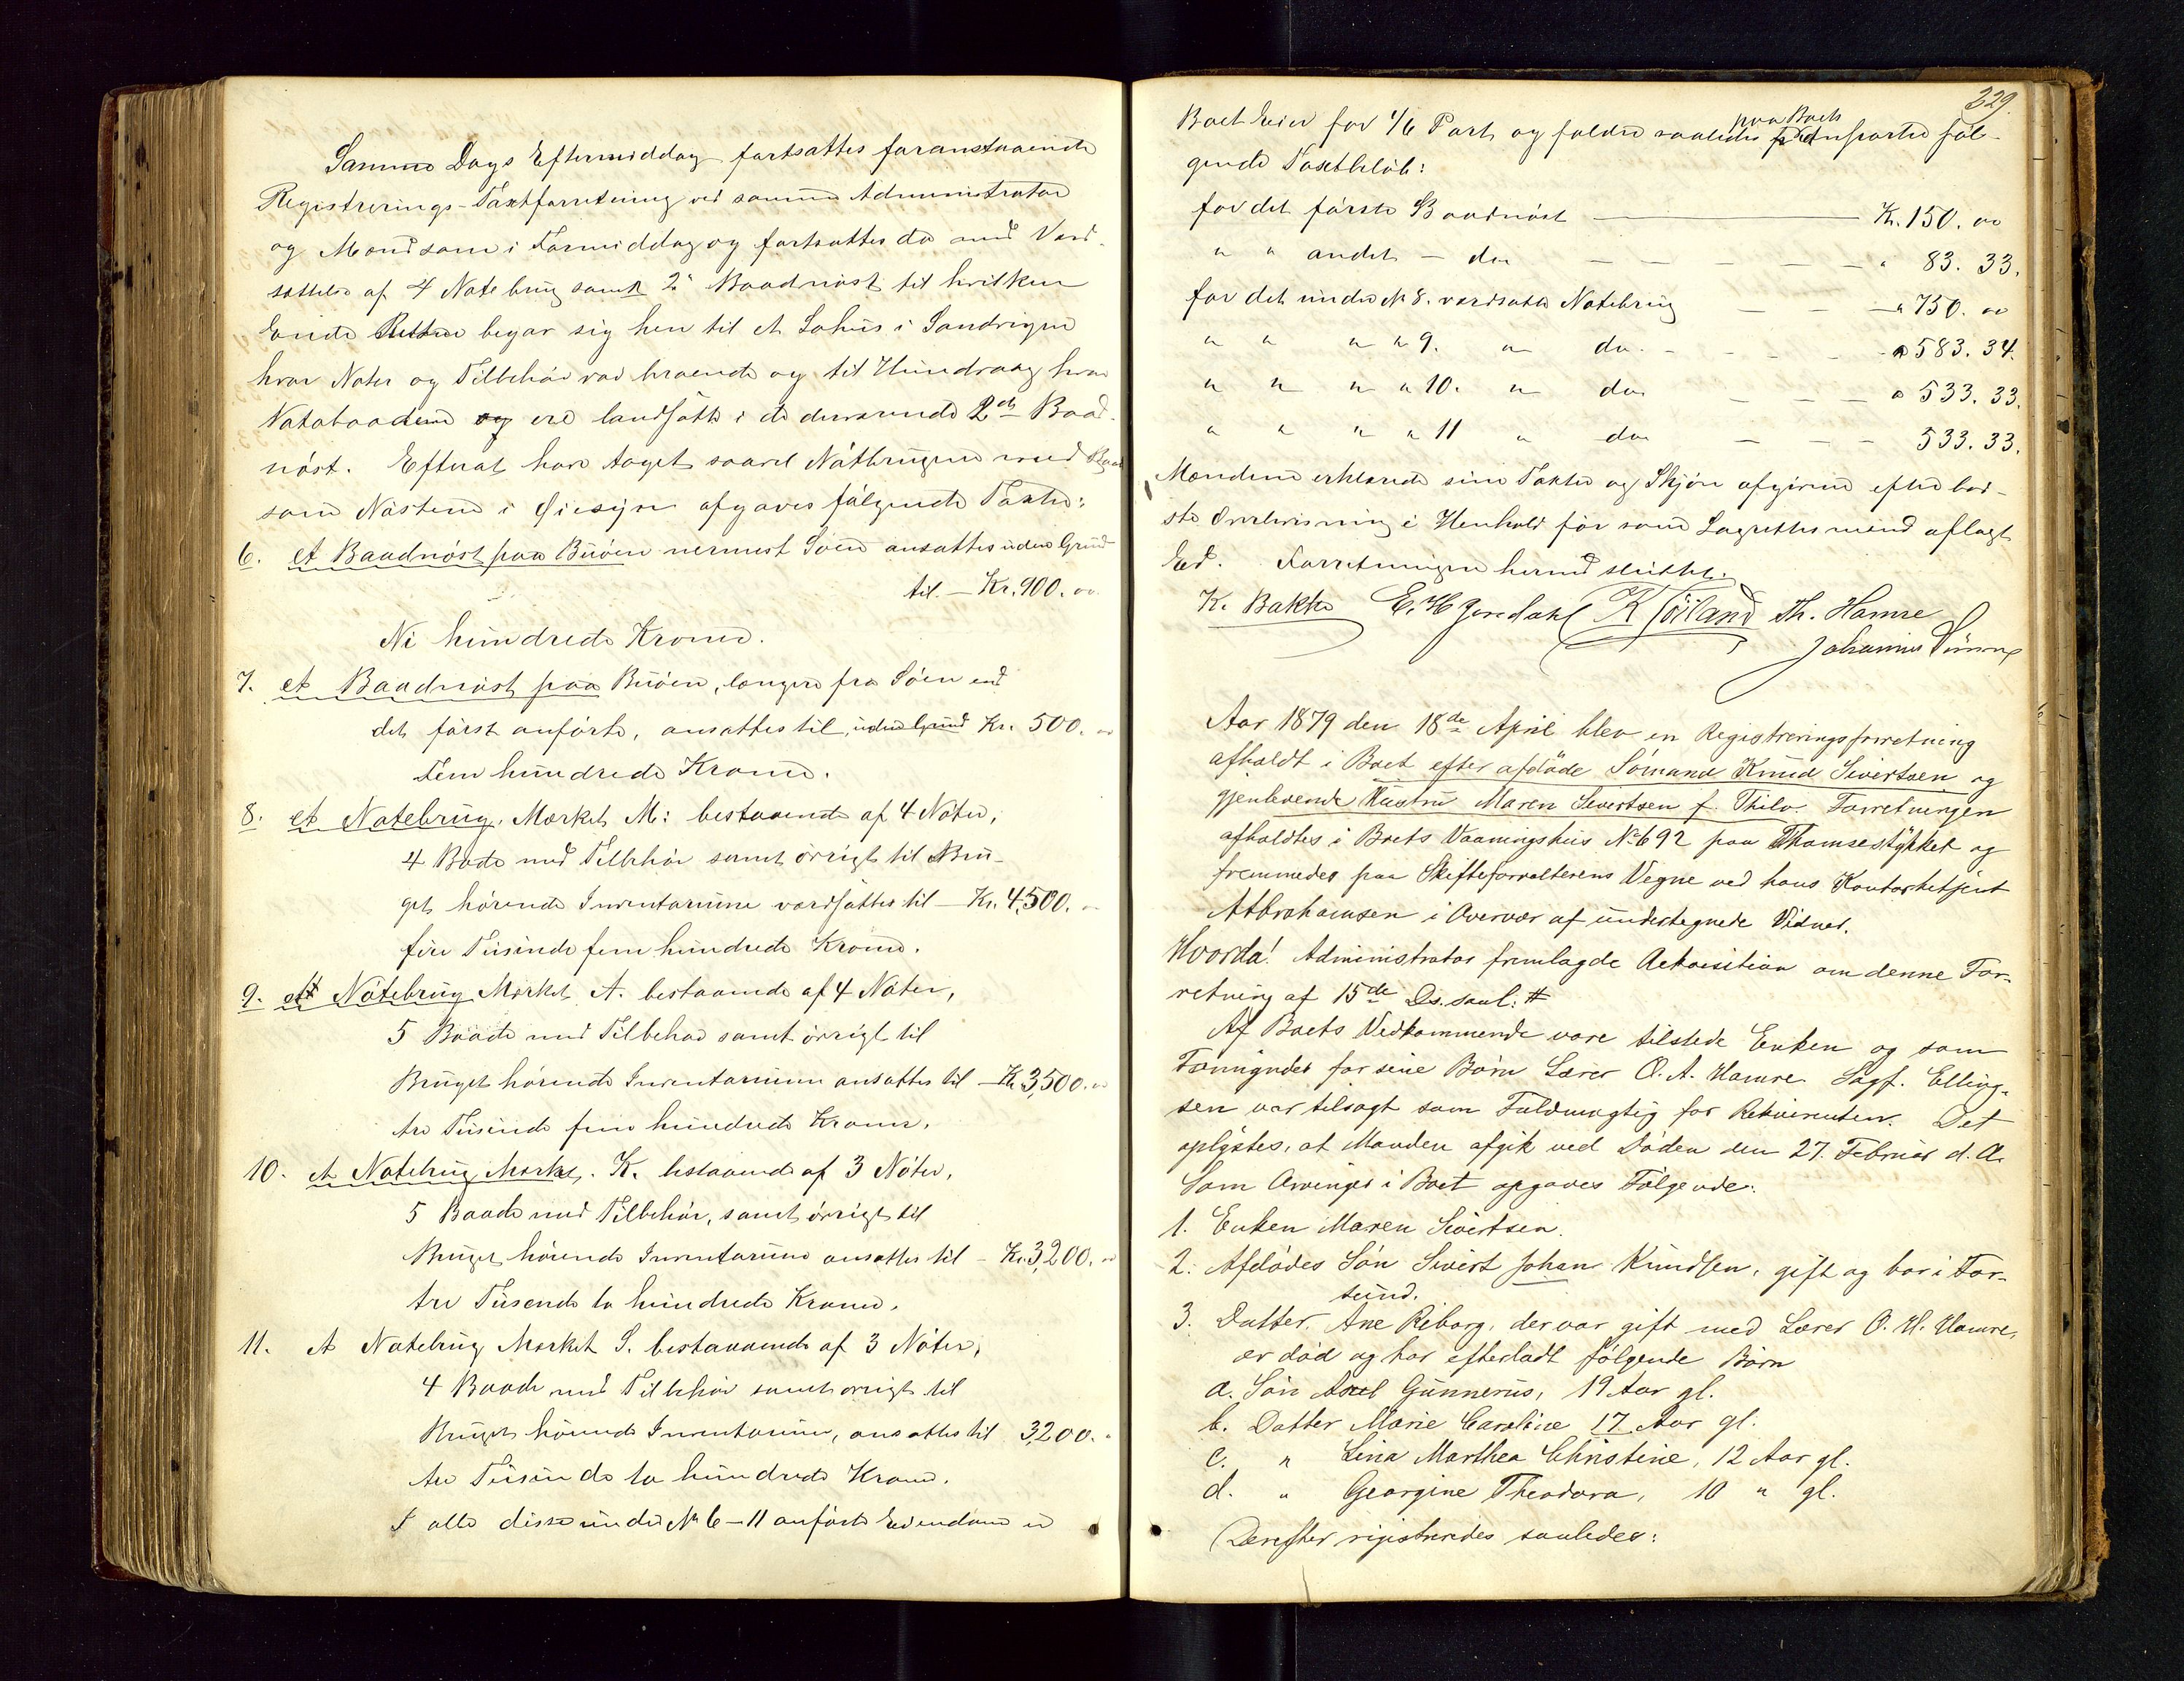 Samme Dags Eftermiddag fortsattes foranstaaende
Registrerings-Taxtforretning ved samme Administrator
og Mænd som i Formiddag og fortsattes da med Værd-
sættelse af 4 Notebrug samt 2 Baadnøst til hvilken
Ende Retten begav sig hen til et Søhus i Sandvigen
hvor Noter og Tilbehør var beroende og til Hundvaag hvor
Notebaadene og ere landsatte i de derværende 2de Baad-
nøst. Efterat have taget saavel Nótbrugene med
som Nøstene i Øiesyn afgaves følgende Taxter:
6. et Baadnøst paa Buøen nærmest Søen ansattes uden Grund
til - Kr. 900. 00
Ni hundrede Kroner.
7. et Baadnøst paa Buøen, længere fra Søen end
det først anførte, ansattes til, uden Grund Kr. 500. 00
Fem hundrede Kroner.
8. et Notebrug, Mærket M: bestaaende af 4 Nøter,
4 Bade med Tilbehør samt øvrigt til Bru-
get hørende Inventarium værdsattes til - Kr. 4,500. 00
fire Tusinde fem hundrede Kroner.
9. et Nøtebrug Mærket A. bestaaende af 4 Nøter,
5 Baade med Tilbehør samt øvrigt til
Bruget hørende Inventarium ansattes til - Kr. 3,500. 00
tre Tusinde fem hundrede Kroner.
10. et Notebrug Mærket. K. bestaaende af 3 Nóter,
5 Baade med Tilbehør, samt øvrigt til
Bruget hørende Inventarium ansattes til - Kr. 3,200. 00
tre Tusende to hundrede Kroner.
11. et Notebrug Mærket S. bestaaende af 3 Nóter,
4 Baade med Tilbehør samt øvrigt til
Bruget hørende Inventarium, ansattes til 3,200. "
tre Tusinde to hundrede Kroner.
I alle disse under No 6-11 anførte Eiendome er
229.
Boet Eier for 1/6 Part og falder saaledes paa Boets føl-
gende Taxtbeløb:
for det første Baadnøst Kr. 150. 00
" " andet - do - - - - - " 83. 33.
for det under No 8. værdsatte Notebrug - - - " 750. 00
" " " " 9. " do. - - - - " 583. 34.
" " " " 10. " do. - - - " 533. 33.
" " " " 11 " do - - - 533. 33.
Mændene erklærede sine Taxter og Skjøn afgivne efter bed-
ste Overbevisning i Henhold før som Lagrettesmænd aflagt
Ed. Forretningen hermed sluttet.
K. Bakke E. H. Jøredahl R Joiland Th. Hamre
Johannes
Aar 1879 den 18de April blev en Registreringsforretning
afholdt i Boet efter afdøde Sømand Knud Sivertsen og
gjenlevende Hustru Maren Sivertsen f. Thilo. Forretningen
afholdtes i Boets Vaaningshus No 692 paa Thomsestykket og
fremmedes paa Skifteforvalterens Vegne ved hans Kontorbetjent
Abrahamsen i Overvær af undertegnede Vidner.
Hvorda! Administrator fremlagde Rekvisition om denne For-
retning af 15de Ds. saal: #
Af Boets Vedkommende vare tilstede Enken og som
Formynder for sine Børn Lærer O. A. Hamre. Sagf. Elling-
sen var tilsagt som Fuldmægtig for Rekvirenten. Det
oplystes, at Manden afgik ved Døden den 27. Februar d. A.
Som Arvinger i Boet opgaves Følgende:
1. Enken Maren Sivertsen.
2. Afdødes Søn Sivert Johan Knudsen, gift og bor i Far-
sund.
3. Datter. Ane Reborg, der var gift med Lærer O. H. Hamre,
er død og har efterladt følgende Børn
a. Søn Axel Gunnerus, 19 Aar gl.
b. Datter Marie Caroline 17 Aar gl.
c. " Lina Marthea Christine, 12 Aar gl.
d. " Georgine Theodora, 10 " gl.
Derefter registreredes saaledes: